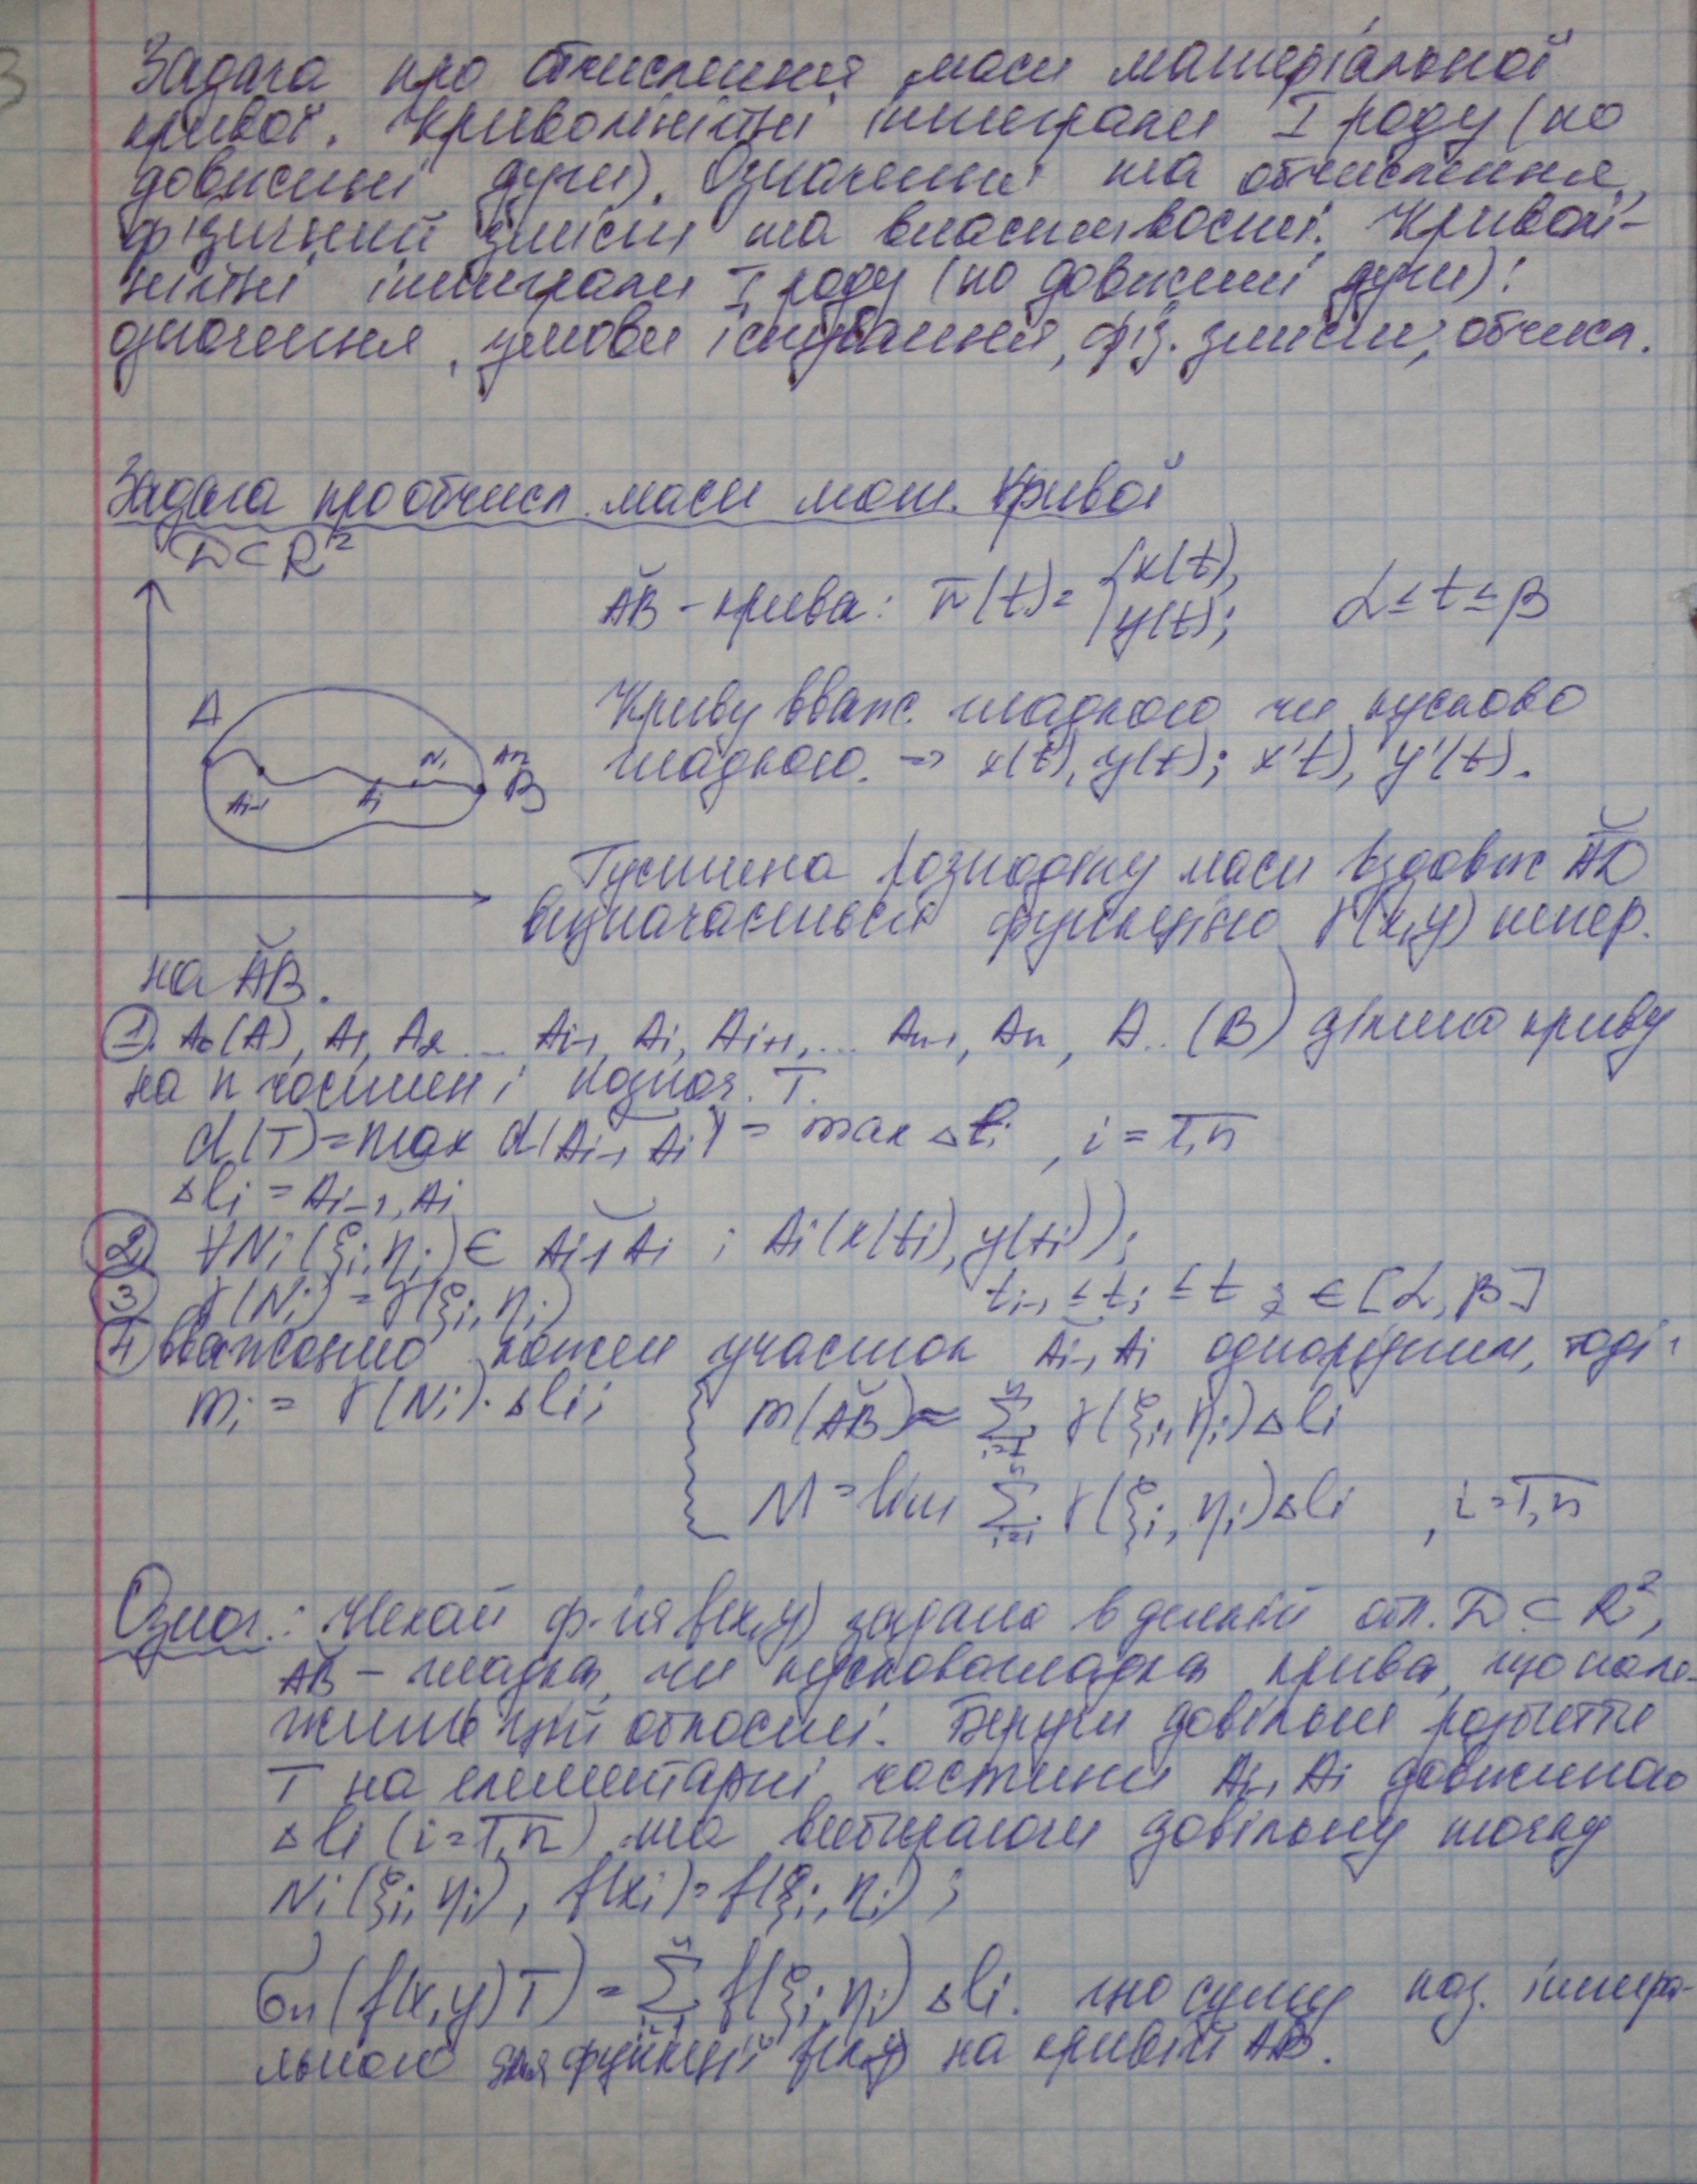 Задача про обчислення маси матеріальної
кривої. Криволінійні інтеграли I роду (по
довжині дуги). Означення та обчислення,
фізичний зміст та властивості. Криволі-
нійні інтеграли I роду (по довжині дуги):
означення, умови існування, фіз. зміст, обчисл.
Задача про обчисл. маси мат. кривої
D ⊂ R²
AB – крива: r̄(t) = { x(t), y(t); α ≤ t ≤ β
A
Криву вваж. гладкою чи кусково
гладкою. ⇒ x(t), y(t); x't), y'(t).
Ai-1 Ai Ni An B
Густина розподілу маси вздовж AB
визначається функцією γ(x,y) непер.
на AB.
1. A0(A), A1, A2 ... Ai-1, Ai, Ai+1, ... An-1, An, A.. (B) ділимо криву
на n частин і познач. T.
d(T) = max d(Ai-1 Ai) = max Δli, i = 1,n
Δli = Ai-1, Ai
2. ∀Ni(ξi, ηi) ∈ Ai-1 Ai ; Ai(x(ti), y(ti));
ti-1 ≤ ti ≤ t ; ∈ [α, β]
3 γ(Ni) = γ(ξi, ηi)
4 вважаємо кожен участок Ai-1 Ai однорідним, тоді:
mi = γ(Ni)·Δli;
m(AB) ≈ Σ γ(ξi, ηi)Δli
M = lim Σ γ(ξi, ηi)Δli , i = 1,n
Означ.: Нехай ф-ія f(x,y) задана в деякій обл. D ⊂ R²,
AB – гладка, чи кусковогладка крива, що нале-
жить цій області. Беручи довільне розбиття
T на елементарні частини Ai-1 Ai довжиною
Δli (i = 1,n) та вибираючи довільну точку
Ni(ξi, ηi), f(xi) = f(ξi, ηi);
σn(f(x,y)T) = Σ f(ξi, ηi) Δli. цю суму наз. інтегра-
льною для функції f(x,y) на кривій AB.